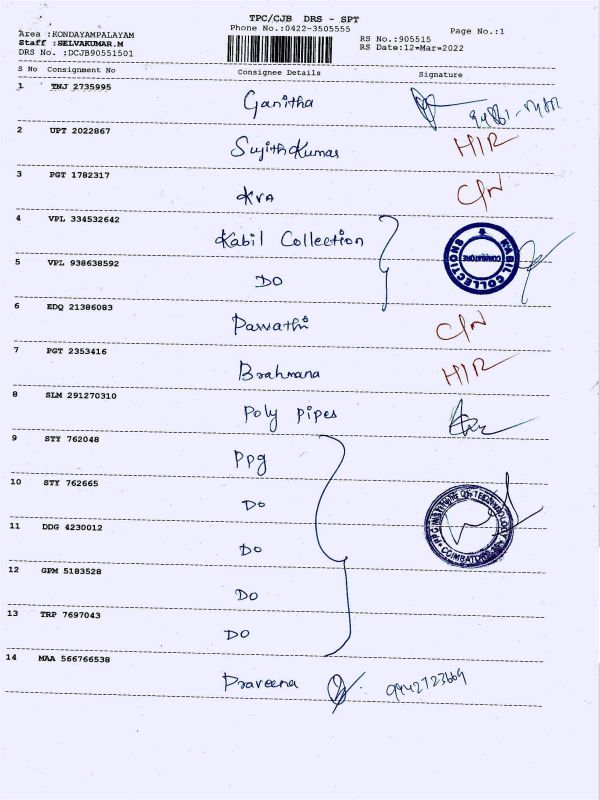 TPC/CJB DRS - SPT
Phone No.:0422-3505555
Page No.:1
Area :KONDAYAMPALAYAM
Staff :SELVAKUMAR.M
DRS No. :DCJB90551501
RS No.:905515
RS Date:12-Mar-2022
S No Consignment No Consignee Details Signature
1 TNJ 2735995 Ganitha
2 UPT 2022867 Sujith Kumar HIR
3 PGT 1782317 KVA C/N
4 VPL 334532642 Kabil Collection
KABIL COLLECTIONS
COIMBATORE
5 VPL 938638592 DO
6 EDQ 21386083 Parvathi C/N
7 PGT 2353416 Brahmana HIR
8 SLM 291270310 Poly pipes
9 STY 762048 PPg
10 STY 762665 DO
PPG INSTITUTE OF TECHNOLOGY
COIMBATORE
11 DDG 4230012 DO
12 GPM 5183528 DO
13 TRP 7697043 DO
14 MAA 566766538 Praveena 9942723669